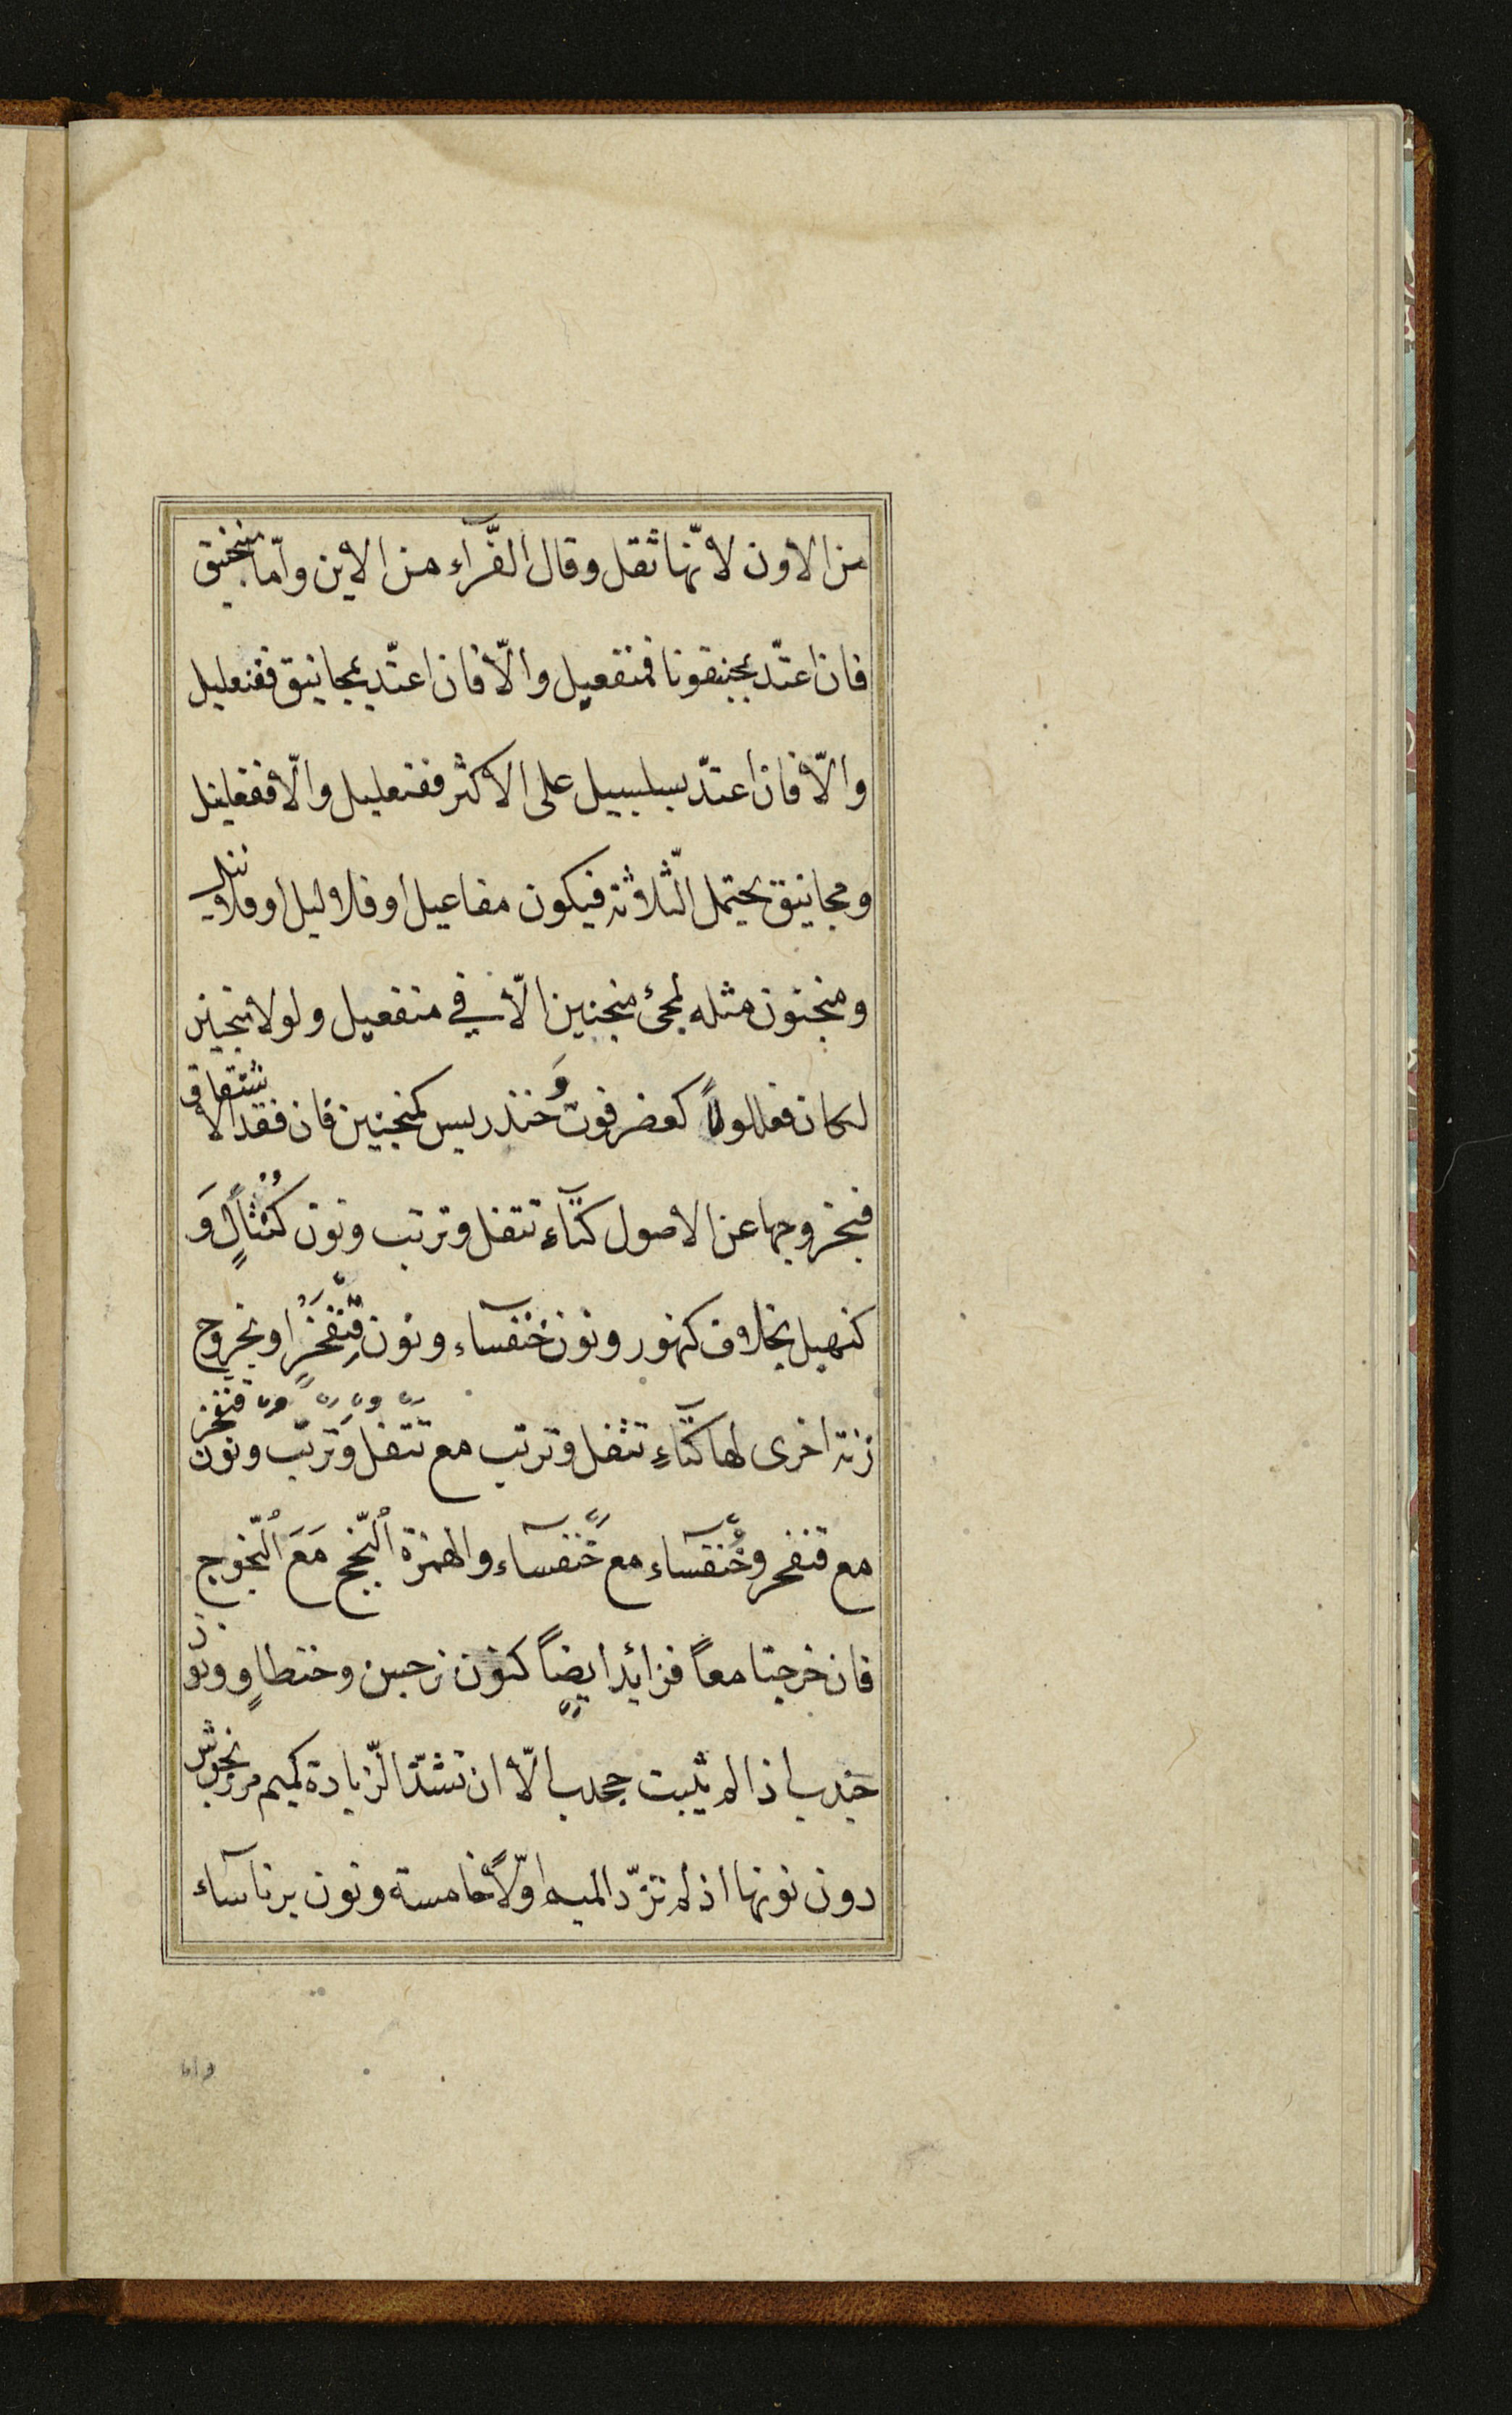 من الاون لانّها ثقل وقال الفَّرآء من الاين وامّا منجنيق
فان اعتدّ بجنقونا فمنفعيل والّا فان اعتدّ بمجانيق ففنعليل
والّا فان اعتدّ بسلسبيل على الاكثر ففنعليل والّا ففعلنيل
ومجانيق يحتمل الثّلاثة فيكون مفاعيل او فلاليل او فلانيل
ومنجنون مثله لمجئ منجنين الّا في منفعيل ولولا منجنين
لكان فعللولاً كعضرفوت وَخندريس كمنجنين فان فقد الاشتقاق
فبخروجها عن الاصول كتآء تتفل وترتب ونون كُنْثَالٍ وَ
كنهبل بخلاف كنهور ونون خنفسآء ونون قِنْفَخْرٍ او بخروج
زنة اخرى لها كتآءِ تتفل وترتب مع تتفل وَترتب ونون قنفخر
مع قنفخر وخُنفسآء مع خُنفسآء والهمزة اَلَنْجَج مَعَ اَلَنْجُوج
فان خرجتا معاً فزائد ايضاً كنون نرجس وحنطاوٍ ونون
جندب اذا لم يثبت جحدب الّا ان تشذّ الزّيادة كميم مرزنجوش
دون نونها اذ لم تزد الميم اوّلاً خامسة ونون برناسآء